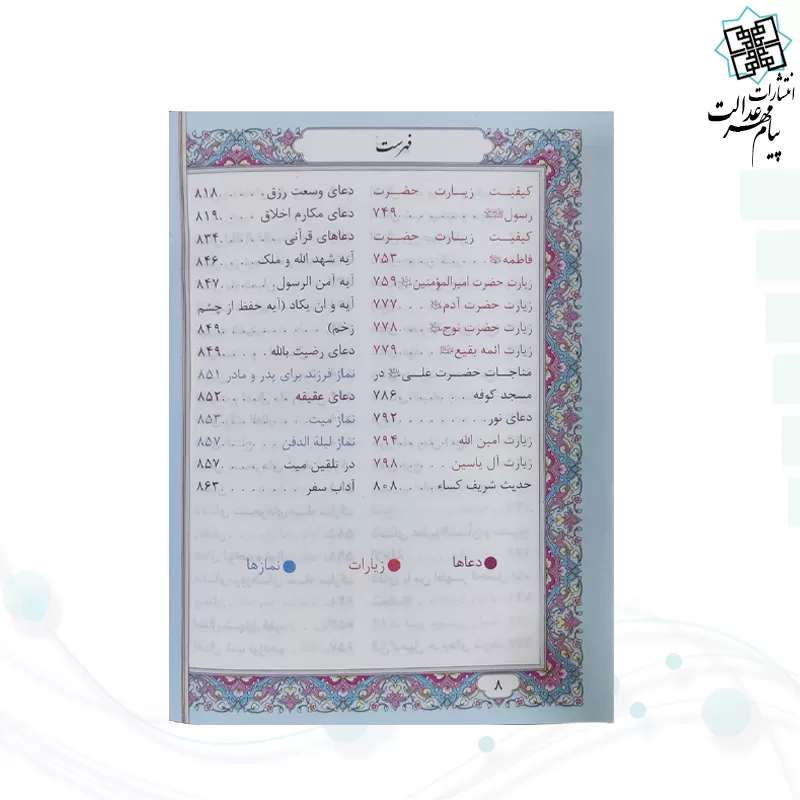 انتشارات
پیام مهر عدالت
فهرست
کیفیت زیارت حضرت
رسول ﷺ . . . . . . ۷۴۹
کیفیت زیارت حضرت
فاطمه . . . . . . ۷۵۳
زیارت حضرت امیرالمؤمنین ۷۵۹
زیارت حضرت آدم . . . . ۷۷۷
زیارت حضرت نوح . . . . ۷۷۸
زیارت ائمه بقیع . . . . ۷۷۹
مناجات حضرت علی در
مسجد کوفه . . . . . . ۷۸۶
دعای نور . . . . . . . . ۷۹۲
زیارت امین الله . . . . . ۷۹۴
زیارت آل یاسین . . . . . ۷۹۸
حدیث شریف کساء . . . . ۸۰۸
دعای وسعت رزق . . . . . ۸۱۸
دعای مکارم اخلاق . . . . ۸۱۹
دعاهای قرآنی . . . . . . ۸۳۴
آیه شهد الله و ملک . . . . ۸۴۶
آیه آمن الرسول . . . . . ۸۴۷
آیه و ان یکاد (آیه حفظ از چشم
زخم) . . . . . . . . ۸۴۹
دعای رضیت بالله . . . . . ۸۴۹
نماز فرزند برای پدر و مادر ۸۵۱
دعای عقیقه . . . . . . ۸۵۲
نماز میت . . . . . . . ۸۵۳
نماز لیلة الدفن . . . . . ۸۵۷
در تلقین میت . . . . . . ۸۵۷
آداب سفر . . . . . . . . ۸۶۳
دعاها زیارات نمازها
۸